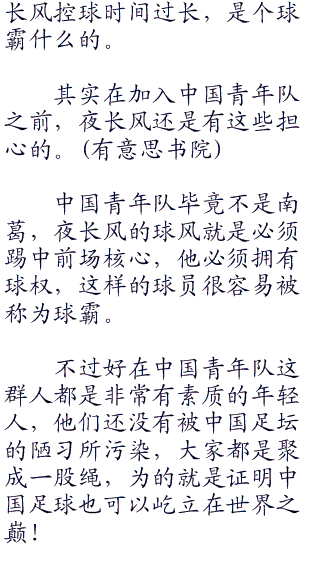 长风控球时间过长，是个球
霸什么的。
其实在加入中国青年队
之前，夜长风还是有这些担
心的。（有意思书院）
中国青年队毕竟不是南
葛，夜长风的球风就是必须
踢中前场核心，他必须拥有
球权，这样的球员很容易被
称为球霸。
不过好在中国青年队这
群人都是非常有素质的年轻
人，他们还没有被中国足坛
的陋习所污染，大家都是聚
成一股绳，为的就是证明中
国足球也可以屹立在世界之
巅！